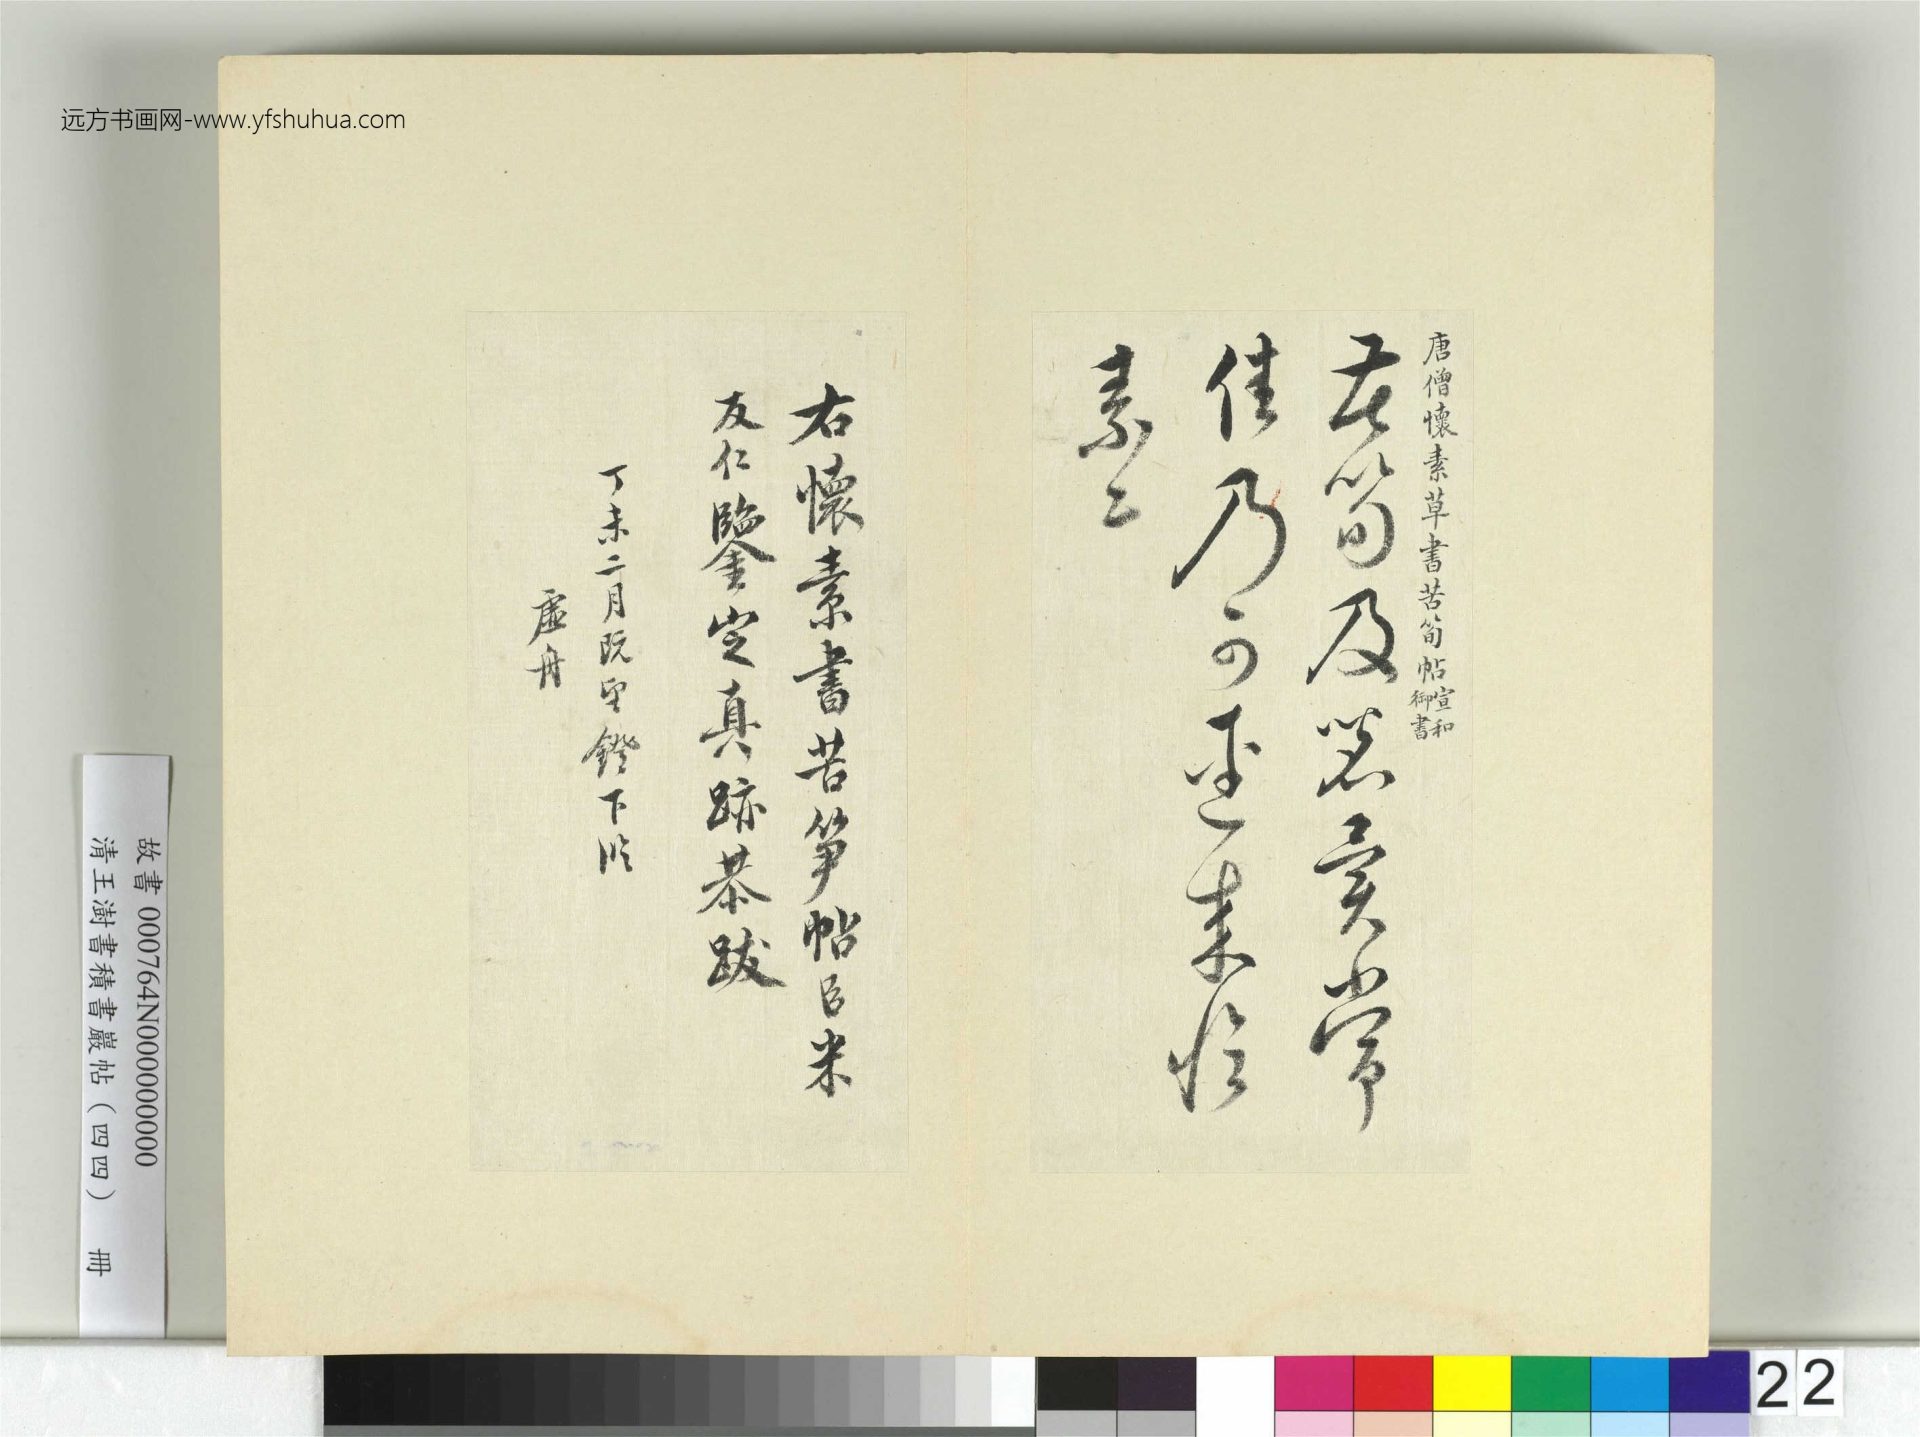 远方书画网-www.yfshuhua.com
唐僧懷素草書苦筍帖宣和御書
苦筍及茗異常
佳乃可逕來懷
素上
右懷素書苦筍帖臣米
友仁鑒定真跡恭跋
丁未二月既望鐙下臨
虛舟
故書 000764N000000000
清王澍書積書巖帖（四四） 冊
22